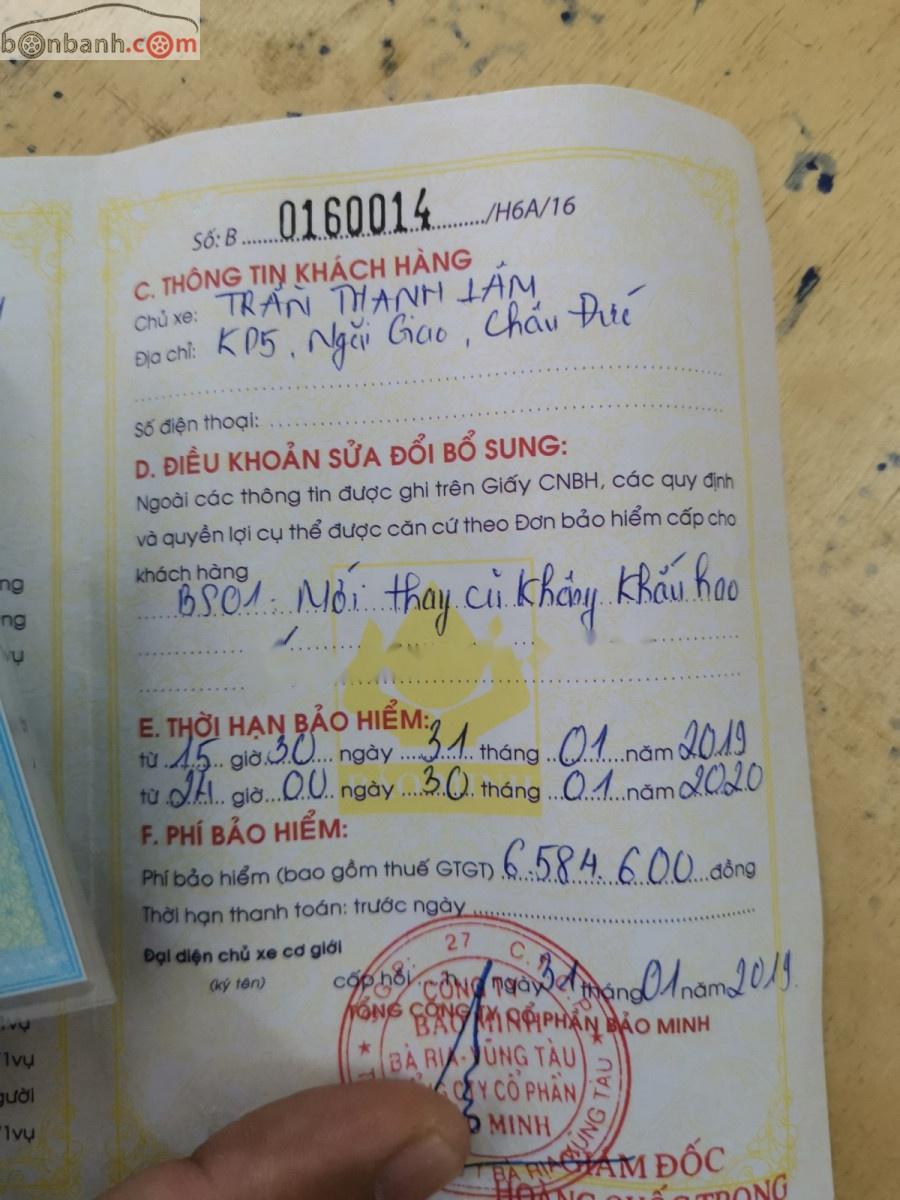 bonbanh.com
Số: B 0160014 /H6A/16
C. THÔNG TIN KHÁCH HÀNG
Chủ xe: TRẦN THANH LÂM
Địa chỉ: KP5, Ngãi Giao, Châu Đức
Số điện thoại:
D. ĐIỀU KHOẢN SỬA ĐỔI BỔ SUNG:
Ngoài các thông tin được ghi trên Giấy CNBH, các quy định
và quyền lợi cụ thể được căn cứ theo Đơn bảo hiểm cấp cho
khách hàng
BS01. Mới thay cũ không khấu hao
E. THỜI HẠN BẢO HIỂM:
từ 15 giờ 30 ngày 31 tháng 01 năm 2019
từ 24 giờ 00 ngày 30 tháng 01 năm 2020
BẢO MINH
F. PHÍ BẢO HIỂM:
Phí bảo hiểm (bao gồm thuế GTGT) 6.584.600 đồng
Thời hạn thanh toán: trước ngày
Đại diện chủ xe cơ giới
(ký tên)
cấp hồi h ngày 31 tháng 01 năm 2019
TỔNG CÔNG TY CỔ PHẦN BẢO MINH
CÔNG TY
BẢO MINH
BÀ RỊA-VŨNG TÀU
CTY CỔ PHẦN
MINH
GIÁM ĐỐC
ng
ng
vụ
vụ
1vụ
gười
1vụ